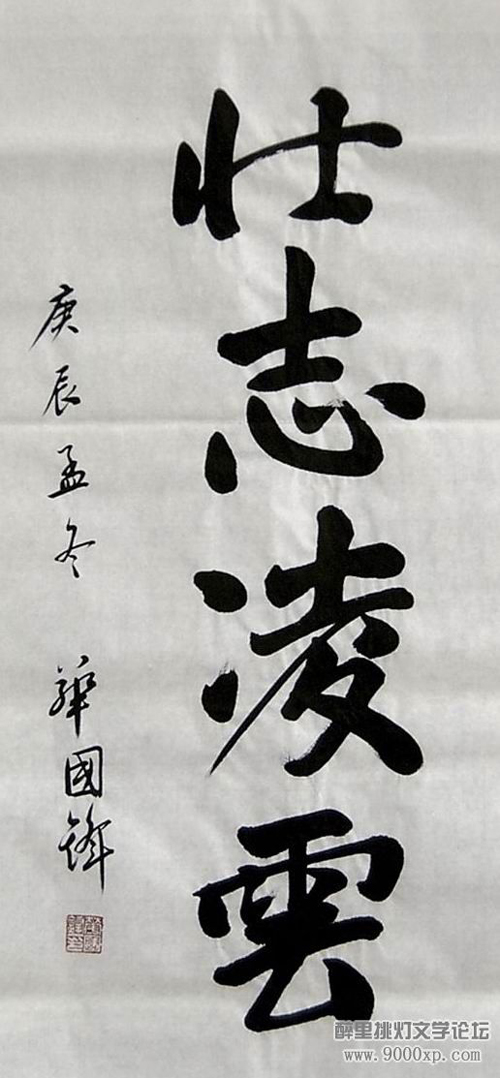 壮志凌雲
庚辰孟冬 華國鋒
醉里挑灯文学论坛
www.9000xp.com